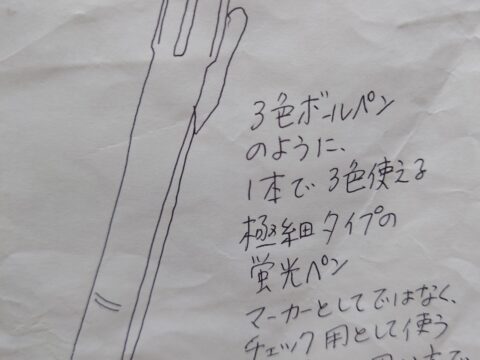 3色ボールペン
のように、
1本で3色使える
極細タイプの
蛍光ペン
マーカーとしてではなく、
チェック用として使う